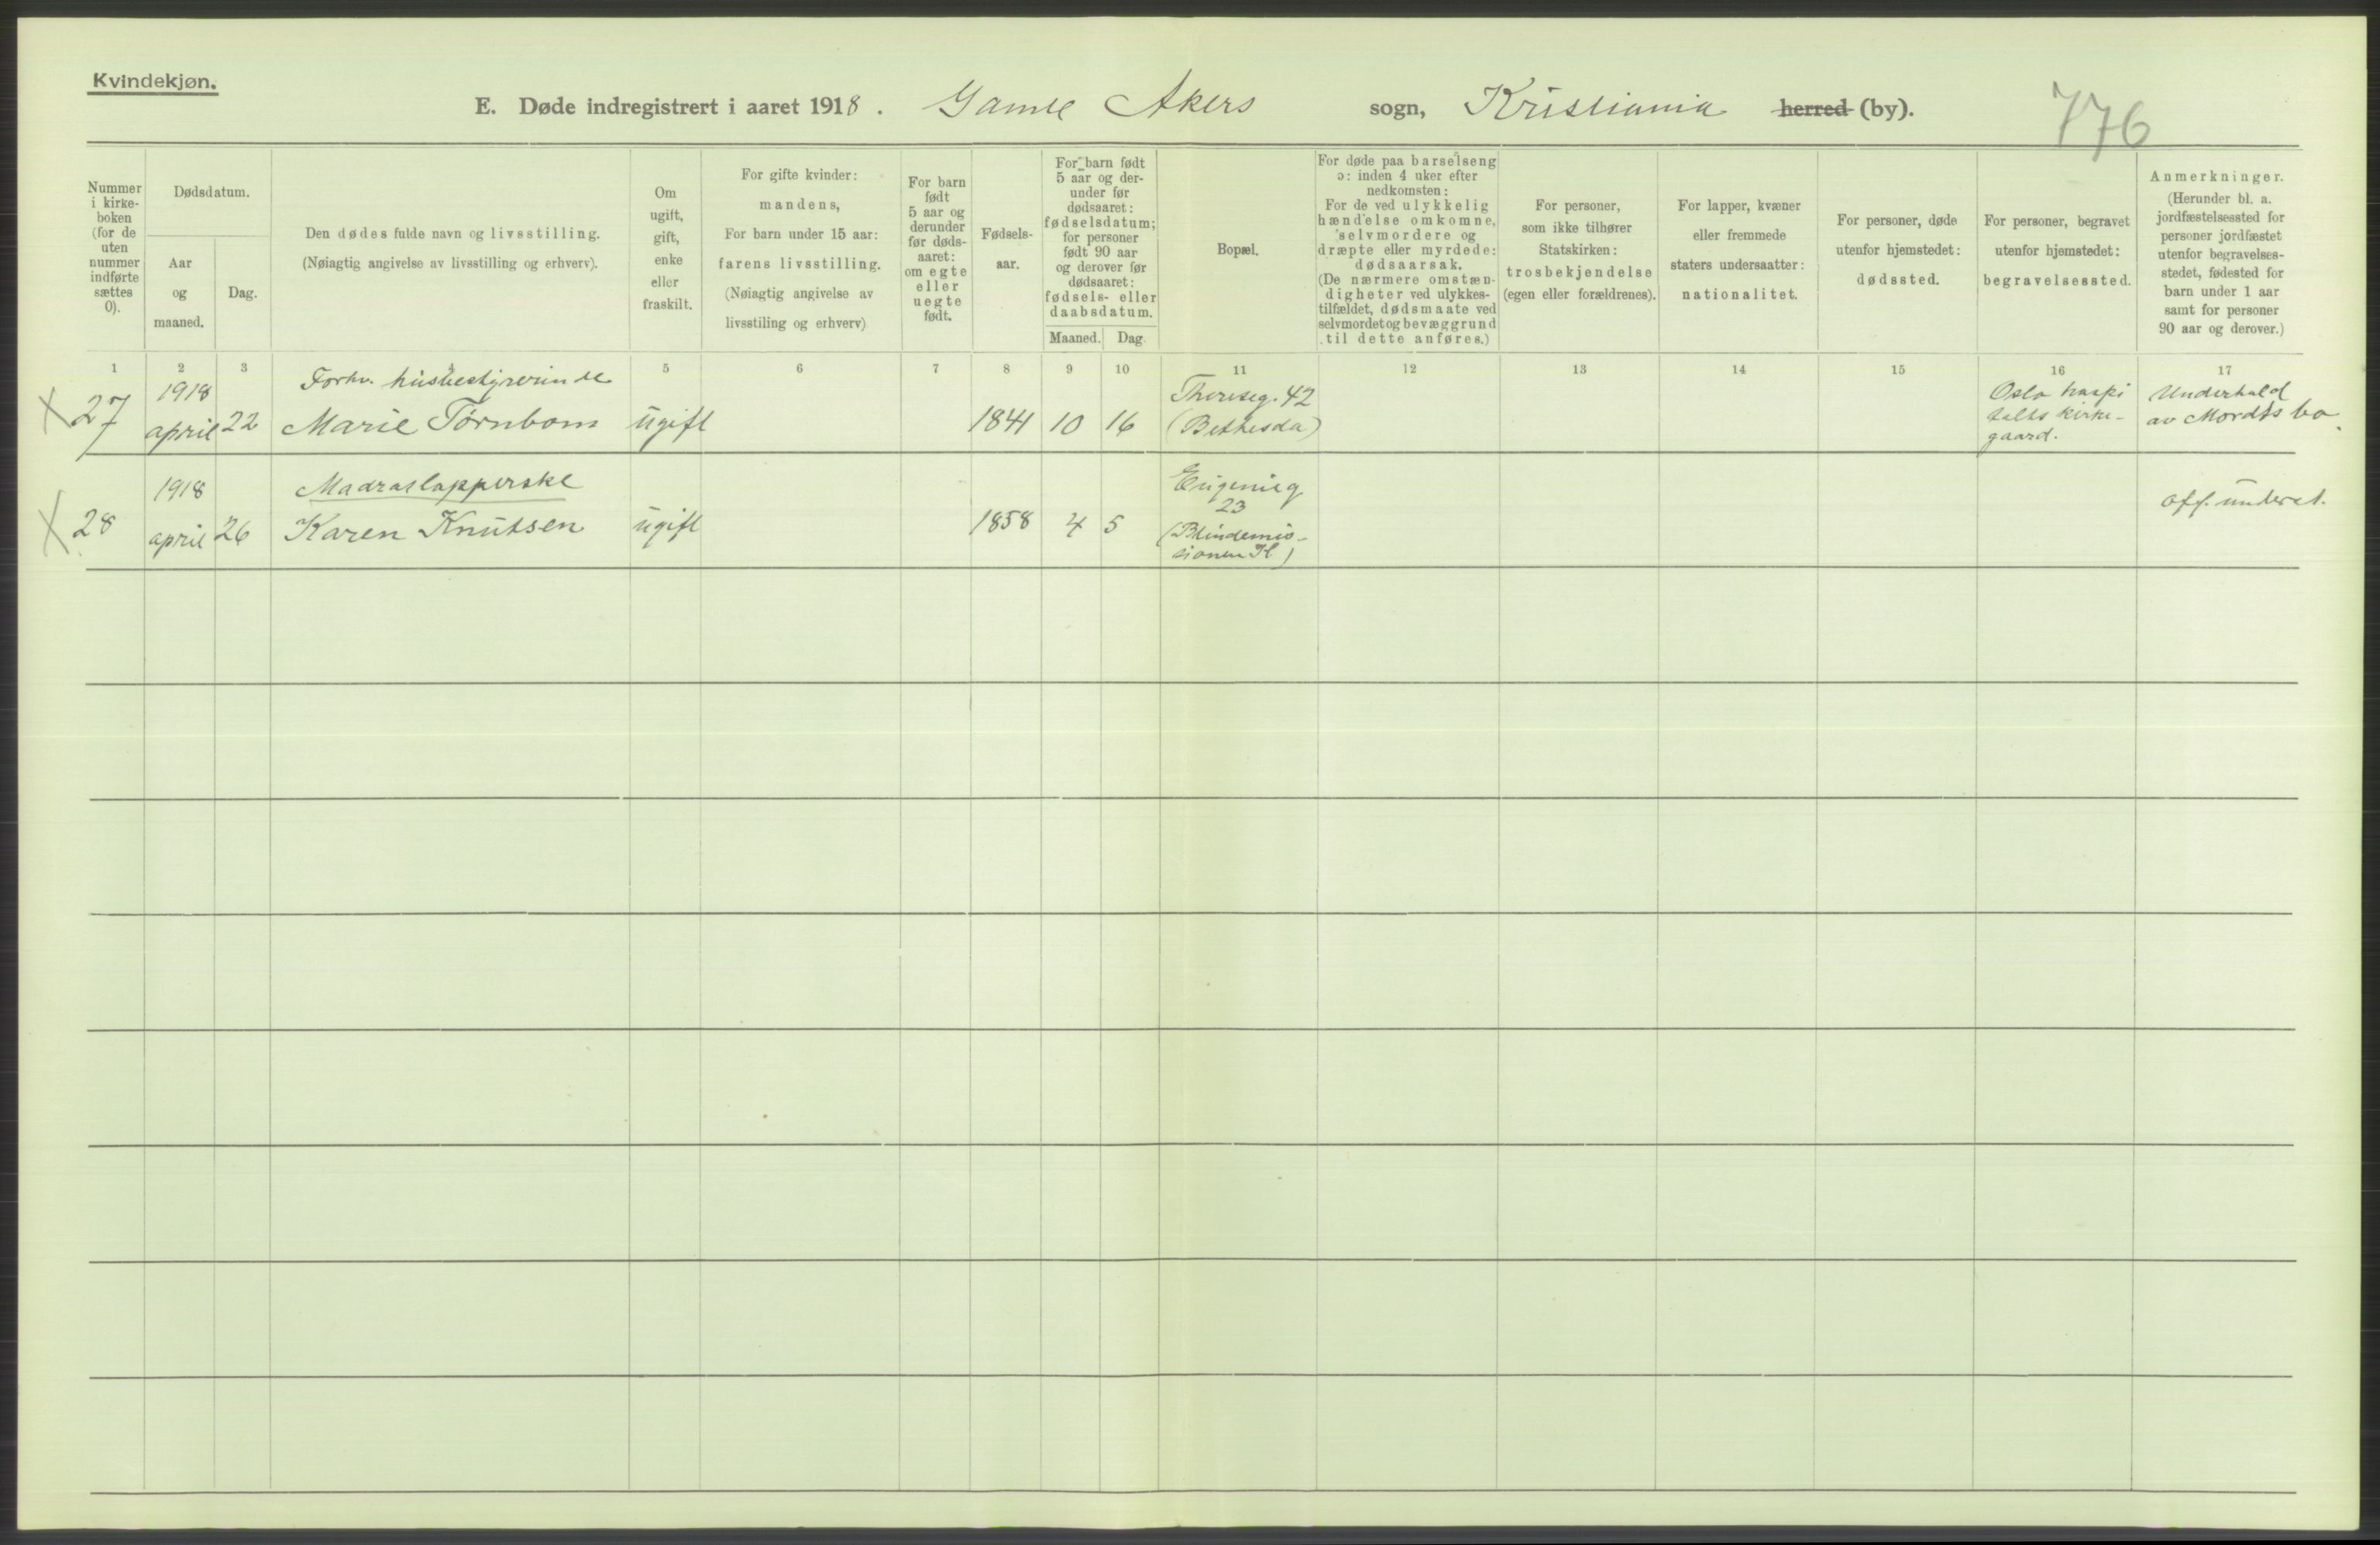 Kvindekjøn.
E. Døde indregistrert i aaret 1918. Gamle Akers sogn, Kristiania herred (by).
776
Nummer
i kirke-
boken
(for de
uten
nummer
indførte
sættes
0).
Dødsdatum.
Aar
og
maaned.
Dag.
Den dødes fulde navn og livsstilling.
(Nøiagtig angivelse av livsstilling og erhverv).
Om
ugift,
gift,
enke
eller
fraskilt.
For gifte kvinder:
mandens,
For barn under 15 aar:
farens livsstilling.
(Nøiagtig angivelse av
livsstiling og erhverv)
For barn
født
5 aar og
derunder
før døds-
aaret:
om egte
eller
uegte
født.
Fødsels-
aar.
For barn født
5 aar og der-
under før
dødsaaret:
fødselsdatum;
for personer
født 90 aar
og derover før
dødsaaret:
fødsels- eller
daabsdatum.
Maaned. Dag.
Bopæl.
For døde paa barselseng
ɔ: inden 4 uker efter
nedkomsten:
For de ved ulykkelig
hændelse omkomne,
selvmordere og
dræpte eller myrdede:
dødsaarsak.
(De nærmere omstæn-
digheter ved ulykkes-
tilfældet, dødsmaate ved
selvmordet og bevæggrund
til dette anføres.)
For personer,
som ikke tilhører
Statskirken:
trosbekjendelse
(egen eller forældrenes).
For lapper, kvæner
eller fremmede
staters undersaatter:
nationalitet.
For personer, døde
utenfor hjemstedet:
dødssted.
For personer, begravet
utenfor hjemstedet:
begravelsessted.
Anmerkninger.
(Herunder bl. a.
jordfæstelsessted for
personer jordfæstet
utenfor begravelses-
stedet, fødested for
barn under 1 aar
samt for personer
90 aar og derover.)
1 2 3 5 6 7 8 9 10 11 12 13 14 15 16 17
27
1918
april 22
Forhv. husbestyrerinde
Marie Tørnbom
ugift
1841 10 16
Thereseg. 42
(Bethesda)
Oslo hospi
talts kirke-
gaard.
Underhold
av Mordts bo.
28
1918
april 26
Madraslapperske
Karen Knutsen
ugift
1858 4 5
Eugenieg
23
(Blindemis-
sionen H)
off. underst.